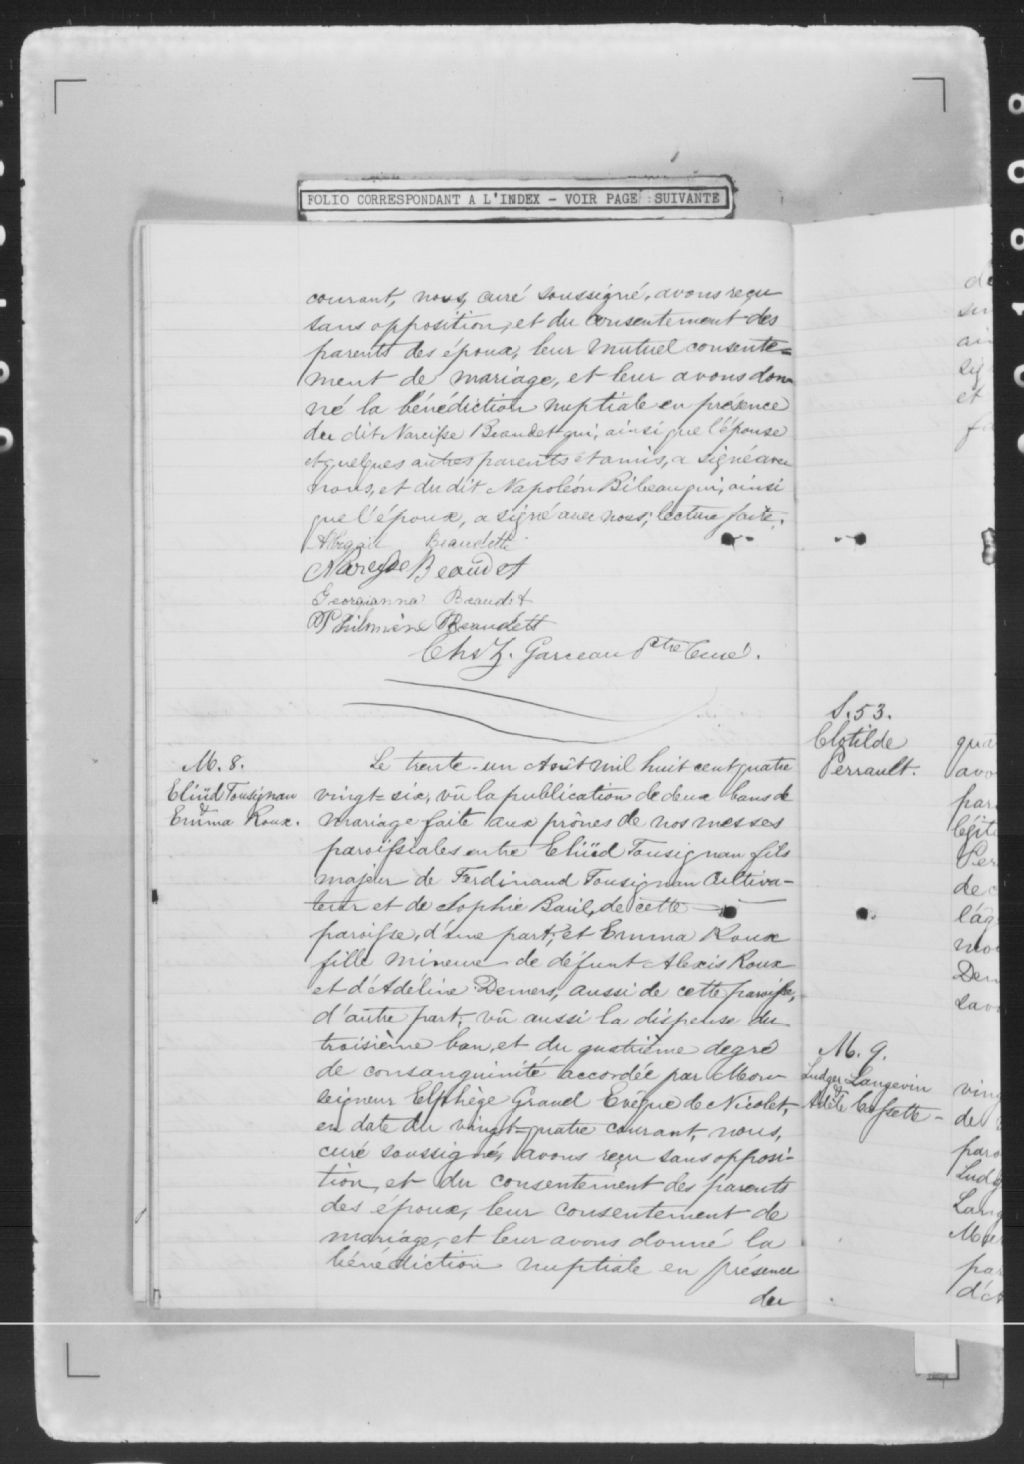 FOLIO CORRESPONDANT A L'INDEX - VOIR PAGE SUIVANTE
courant, nous, curé soussigné, avons reçu
sans opposition, et du consentement des
parents des époux, leur mutuel consente=
ment de mariage, et leur avons don-
né la bénédiction nuptiale en présence
du dit Narcisse Beaudet qui, ainsi que l'épouse
et quelques autres parents et amis, a signé avec
nous, et du dit Napoléon Bibeau qui, ainsi
que l'époux, a signé avec nous; lecture faite.
Beaudette
Narcisse Beaudet
Georgianna Beaudet
Philomène Beaudett
Chs Z. Garceau Ptre Curé.
M. 8.
Eliüd Tousignan
&
Emma Roux.
Le trente-un Août mil huit cent quatre
vingt=six, vû la publication de deux bans de
mariage faite aux prônes de nos messes
paroissiales entre Eliüd Tousignan fils
majeur de Ferdinand Tousignan Cultiva-
teur et de Sophie Baril, de cette
paroisse, d'une part, et Emma Roux
fille mineure de défunt Alexis Roux
et d'Adéline Demers, aussi de cette paroisse,
d'autre part, vû aussi la dispense du
troisième ban, et du quatrième degré
de consanguinité accordée par Mon-
seigneur Elphège Gravel Evêque de Nicolet,
en date du vingt=quatre courant, nous,
curé soussigné, avons reçu sans opposi-
tion, et du consentement des parents
des époux, leur consentement de
mariage, et leur avons donné la
bénédiction nuptiale en présence
du
S. 53.
Clotilde
Perrault.
M. 9.
Ludger Langevin
&